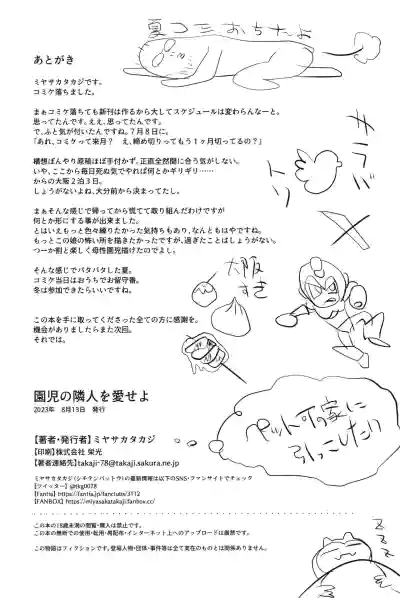 夏コミおちたよ
あとがき
ミヤサカタカジです。
コミケ落ちました。
まぁコミケ落ちても新刊は作るから大してスケジュールは変わらんなーと。
思ってたんです。ええ、思ってたんです。
で、ふと気が付いたんですね。7月8日に。
「あれ、コミケって来月？　え、締め切りってもう1ヶ月切ってるの？」
構想ぼんやり原稿ほぼ手付かず。正直全然間に合う気がしない。
いや、ここから毎日死ぬ気でやれば何とかギリギリ……
からの大阪2泊3日。
しょうがないよね、大分前から決まってたし。
まぁそんな感じで帰ってから慌てて取り組んだわけですが
何とか形にする事が出来ました。
とはいえもっと色々練りたかった気持ちもあり、なんともはやですね。
もっとこの娘の怖い所を描きたかったですが、過ぎたことはしょうがない。
つーか割と楽しく母性園児描けたのでよし。
そんな感じでバタバタした夏。
コミケ当日はおうちでお留守番。
冬は参加できたらいいですね。
この本を手に取ってくださった全ての方に感謝を。
機会がありましたらまた次回。
それでは。
大阪
すき
ペット可の家に
引っこしたい
園児の隣人を愛せよ
2023年　8月13日　発行
【著者・発行者】ミヤサカタカジ
【印刷】株式会社 栄光
【著者連絡先】takaji-78@takaji.sakura.ne.jp
ミヤサカタカジ(シチテンバットウ)の最新情報は以下のSNS・ファンサイトでチェック
【Fantia】https://fantia.jp/fanclubs/3112
【FANBOX】https://miyasakatakaji.fanbox.cc/
この本の18歳未満の閲覧・購入は禁止です。
この本の無断での使用・転用・再配布・インターネット上へのアップロードは厳禁です。
この物語はフィクションです。登場人物・団体・事件等は全て実在のものとは関係ありません。